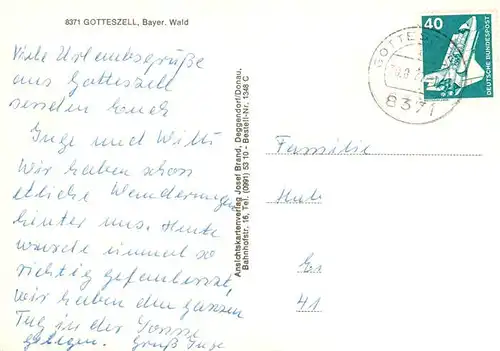 8371 GOTTESZELL, Bayer. Wald
Viele Urlaubsgrüße
aus Gotteszell
senden Euch
Inge und Willi
Wir haben schon
etliche Wanderungen
hinter uns. Heute
wurde einmal so
richtig gefaulenzt,
wir haben den ganzen
Tag in der Sonne
gelegen. Gruß Inge
Ansichtskartenverlag Josef Brand, Deggendorf/Donau,
Bahnhofstr. 16, Tel. (0991) 53 10 - Bestell-Nr. 1348 C
GOTTES
8371
40
DEUTSCHE BUNDESPOST
Familie
41